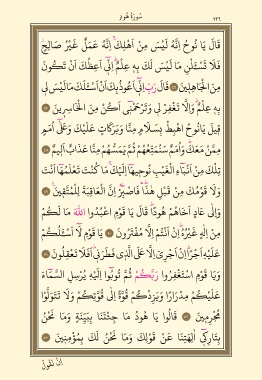 سُورَةُ هُودٍ ٢٢٦
قَالَ يَا نُوحُ اِنَّهُ لَيْسَ مِنْ اَهْلِكَۚ اِنَّهُ عَمَلٌ غَيْرُ صَالِحٍۗ
فَلَا تَسْـَٔلْنِ مَا لَيْسَ لَكَ بِه۪ عِلْمٌۜ اِنّ۪ٓي اَعِظُكَ اَنْ تَكُونَ
مِنَ الْجَاهِل۪ينَ ﴿٤٦﴾ قَالَ رَبِّ اِنّ۪ٓي اَعُوذُ بِكَ اَنْ اَسْـَٔلَكَ مَا لَيْسَ ل۪ي
بِه۪ عِلْمٌۜ وَاِلَّا تَغْفِرْ ل۪ي وَتَرْحَمْن۪ٓي اَكُنْ مِنَ الْخَاسِر۪ينَ ﴿٤٧﴾
ق۪يلَ يَا نُوحُ اهْبِطْ بِسَلَامٍ مِنَّا وَبَرَكَاتٍ عَلَيْكَ وَعَلٰٓى اُمَمٍ
مِمَّنْ مَعَكَۜ وَاُمَمٌ سَنُمَتِّعُهُمْ ثُمَّ يَمَسُّهُمْ مِنَّا عَذَابٌ اَل۪يمٌ ﴿٤٨﴾
تِلْكَ مِنْ اَنْبَٓاءِ الْغَيْبِ نُوح۪يهَٓا اِلَيْكَۚ مَا كُنْتَ تَعْلَمُهَٓا اَنْتَ
وَلَا قَوْمُكَ مِنْ قَبْلِ هٰذَاۜ فَاصْبِرْۜ اِنَّ الْعَاقِبَةَ لِلْمُتَّق۪ينَ۟ ﴿٤٩﴾
وَاِلٰى عَادٍ اَخَاهُمْ هُودًاۜ قَالَ يَا قَوْمِ اعْبُدُوا اللّٰهَ مَا لَكُمْ
مِنْ اِلٰهٍ غَيْرُهُۜ اِنْ اَنْتُمْ اِلَّا مُفْتَرُونَ ﴿٥٠﴾ يَا قَوْمِ لَٓا اَسْـَٔلُكُمْ
عَلَيْهِ اَجْرًاۜ اِنْ اَجْرِيَ اِلَّا عَلَى الَّذ۪ي فَطَرَن۪يۜ اَفَلَا تَعْقِلُونَ ﴿٥١﴾
وَيَا قَوْمِ اسْتَغْفِرُوا رَبَّكُمْ ثُمَّ تُوبُٓوا اِلَيْهِ يُرْسِلِ السَّمَٓاءَ
عَلَيْكُمْ مِدْرَارًا وَيَزِدْكُمْ قُوَّةً اِلٰى قُوَّتِكُمْ وَلَا تَتَوَلَّوْا
مُجْرِم۪ينَ ﴿٥٢﴾ قَالُوا يَا هُودُ مَا جِئْتَنَا بِبَيِّنَةٍ وَمَا نَحْنُ
بِتَارِك۪ٓي اٰلِهَتِنَا عَنْ قَوْلِكَ وَمَا نَحْنُ لَكَ بِمُؤْمِن۪ينَ ﴿٥٣﴾
اِنْ نَقُولُ